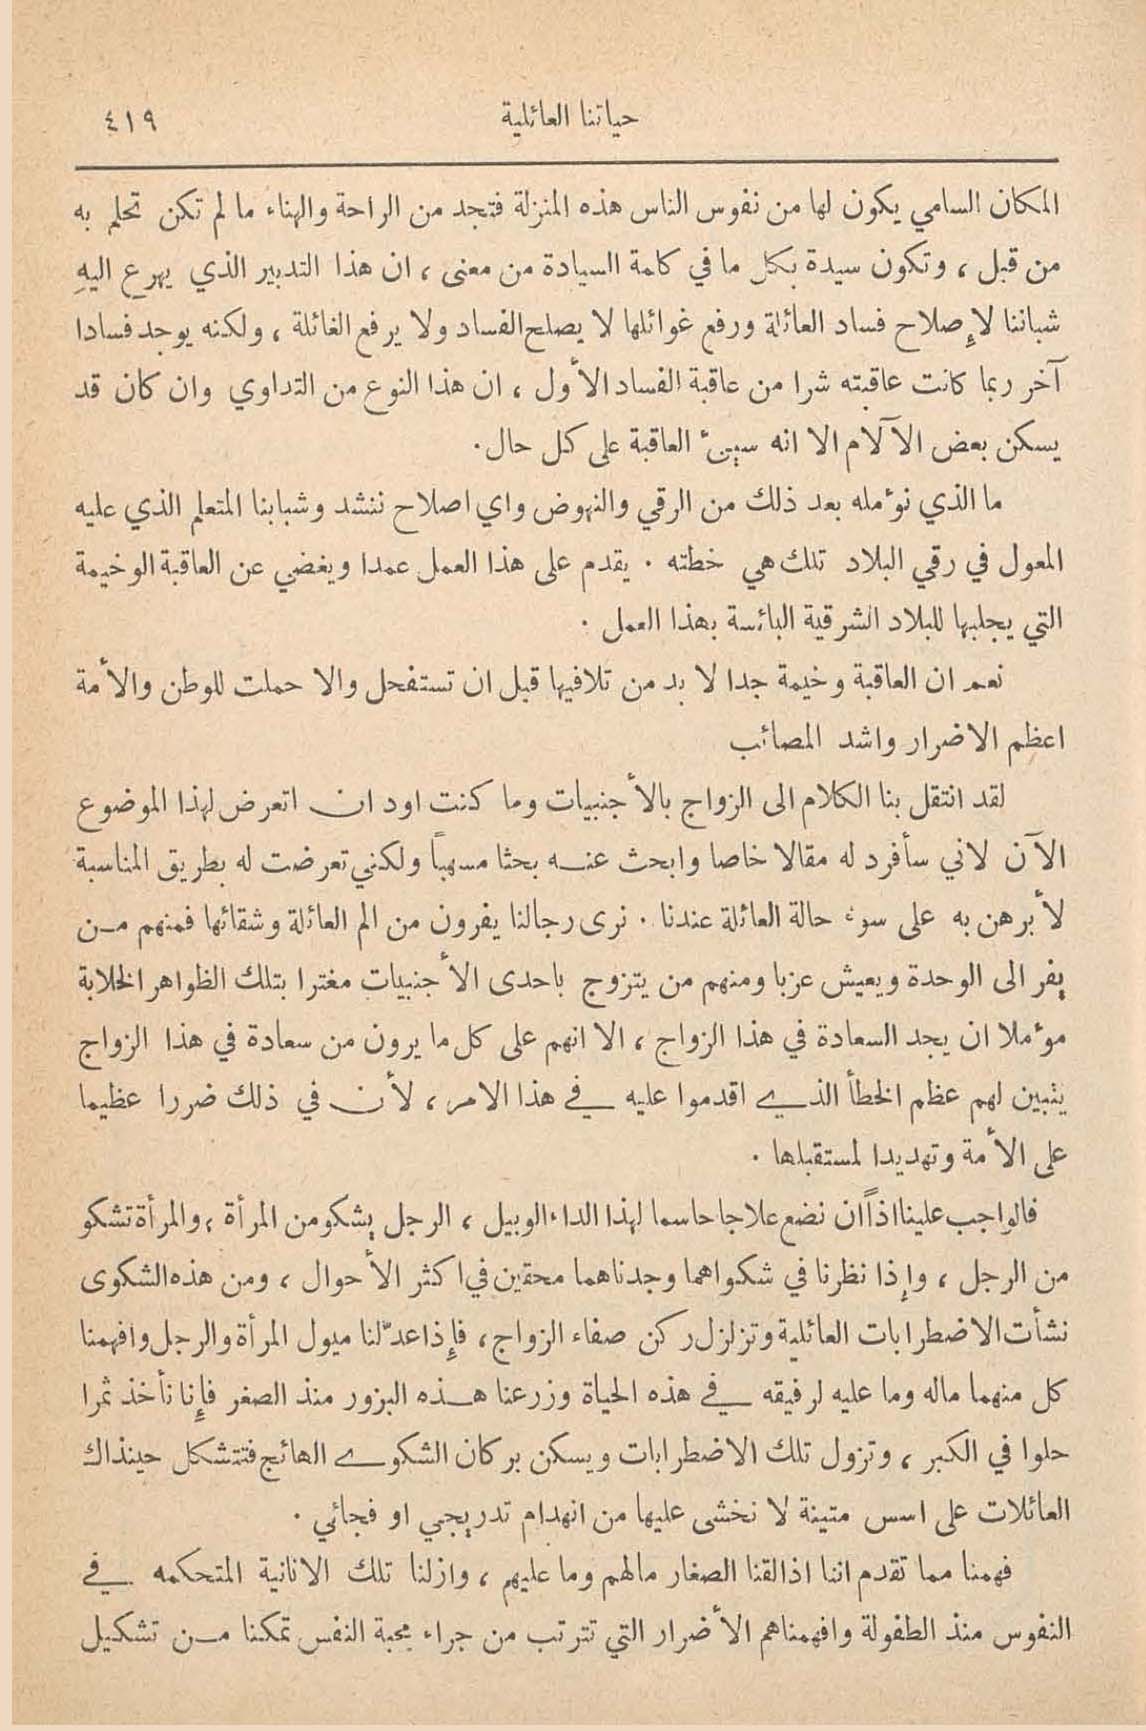 حياتنا العائلية ٤١٩
المكان السامي يكون لها من نفوس الناس هذه المنزلة فتجد من الراحة والهناء ما لم تكن تحلم به
من قبل ، وتكون سيدة بكل ما في كلمة السيادة من معنى ، ان هذا التدبير الذي يهرع اليهِ
شباننا لإصلاح فساد العائلة ورفع غوائلها لا يصلح الفساد ولا يرفع الغائلة ، ولكنه يوجد فسادا
آخر ربما كانت عاقبته شرا من عاقبة الفساد الأول ، ان هذا النوع من التداوي وان كان قد
يسكن بعض الآلام الا انه سيئ العاقبة على كل حال .
ما الذي نؤمله بعد ذلك من الرقي والنهوض واي اصلاح ننشد وشبابنا المتعلم الذي عليه
المعول في رقي البلاد تلك هي خطته . يقدم على هذا العمل عمدا ويغضي عن العاقبة الوخيمة
التي يجلبها للبلاد الشرقية البائسة بهذا العمل .
نعم ان العاقبة وخيمة جدا لا بد من تلافيها قبل ان تستفحل والا حملت للوطن والأمة
اعظم الاضرار واشد المصائب
لقد انتقل بنا الكلام الى الزواج بالأجنبيات وما كنت اود ان اتعرض لهذا الموضوع
الآن لاني سأفرد له مقالا خاصا وابحث عنه بحثا مسهباً ولكني تعرضت له بطريق المناسبة
لأبرهن به على سوء حالة العائلة عندنا . نرى رجالنا يفرون من الم العائلة وشقائها فمنهم من
يفر الى الوحدة ويعيش عزبا ومنهم من يتزوج باحدى الأجنبيات مغترا بتلك الظواهر الخلابة
مؤملا ان يجد السعادة في هذا الزواج ، الا انهم على كل ما يرون من سعادة في هذا الزواج
يتبين لهم عظم الخطأ الذي اقدموا عليه في هذا الامر ، لأن في ذلك ضررا عظيما
على الأمة وتهديدا لمستقبلها .
فالواجب علينا اذاً ان نضع علاجا حاسما لهذا الداء الوبيل ، الرجل يشكو من المرأة ، والمرأة تشكو
من الرجل ، وإذا نظرنا في شكواهما وجدناهما محقين في اكثر الأحوال ، ومن هذه الشكوى
نشأت الاضطرابات العائلية وتزلزل ركن صفاء الزواج ، فإذا عدّلنا ميول المرأة والرجل وافهمنا
كل منهما ماله وما عليه لرفيقه في هذه الحياة وزرعنا هذه البزور منذ الصغر فإنا نأخذ ثمرا
حلوا في الكبر ، وتزول تلك الاضطرابات ويسكن بركان الشكوى الهائج فتتشكل حينذاك
العائلات على اسس متينة لا نخشى عليها من انهدام تدريجي او فجائي .
فهمنا مما تقدم اننا اذا لقنا الصغار مالهم وما عليهم ، وازلنا تلك الانانية المتحكمه في
النفوس منذ الطفولة وافهمناهم الأضرار التي تترتب من جراء محبة النفس تمكنا من تشكيل